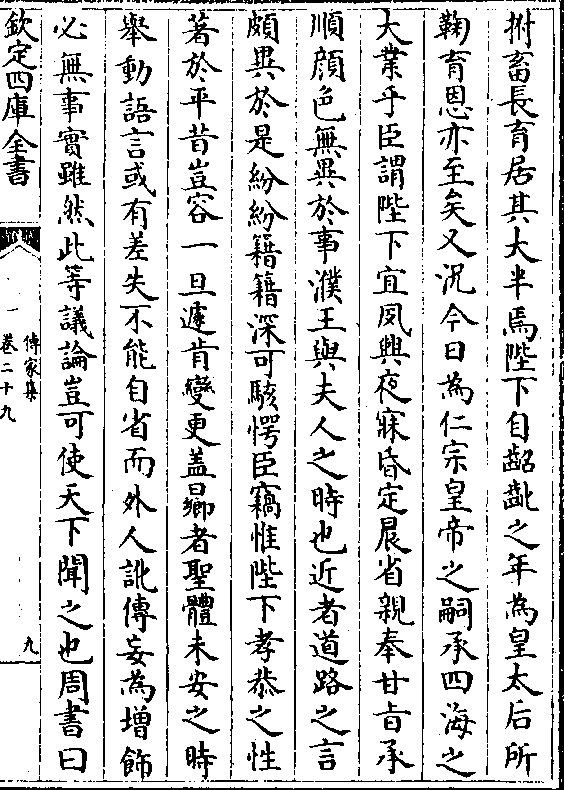 拊畜長育居其大半焉陛下自齠齔之年為皇太后所
鞠育恩亦至矣又況今日為仁宗皇帝之嗣承四海之
大業乎臣謂陛下宜夙興夜寐昏定晨省親奉甘旨承
順顔色無異於事濮王與夫人之時也近者道路之言
頗異於是紛紛籍籍深可駭愕臣竊惟陛下孝恭之性
著於平昔豈容一旦遽肯變更盖曏者聖體未安之時
舉動語言或有差失不能自省而外人訛傳妄為增飾
必無事實雖然此等議論豈可使天下聞之也周書曰
欽定四庫全書
傳家集
卷二十九
九